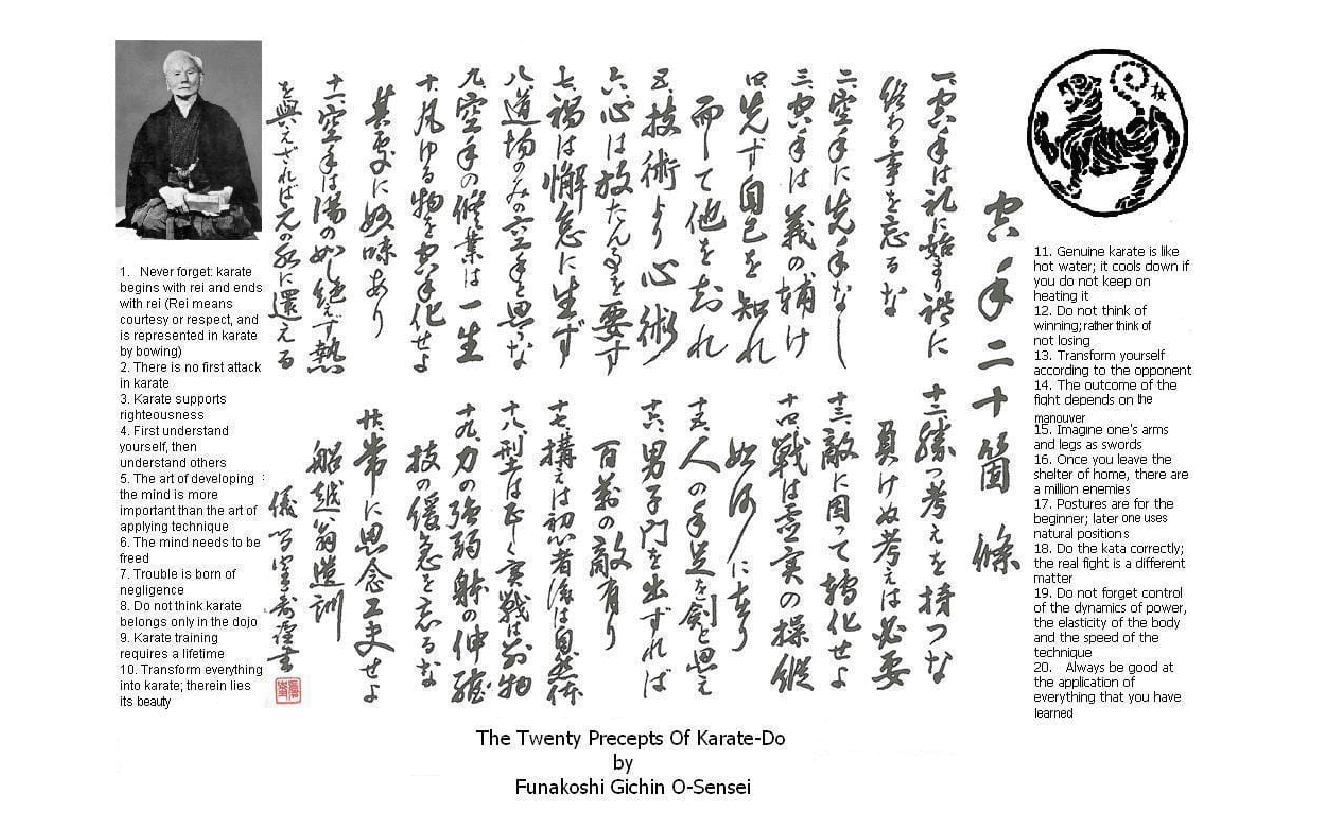 1. Never forget: karate
begins with rei and ends
with rei (Rei means
courtesy or respect, and
is represented in karate
by bowing)
2. There is no first attack
in karate
3. Karate supports
righteousness
4. First understand
yourself, then
understand others
5. The art of developing :
the mind is more
important than the art of
applying technique
6. The mind needs to be
freed
7. Trouble is born of
negligence
8. Do not think karate
belongs only in the dojo
9. Karate training
requires a lifetime
10. Transform everything
into karate; therein lies
its beauty
空手二十箇條
一、空手は礼に始まり禮に
終わる事を忘るな
二、空手に先手なし
三、空手は義の輔け
四、先ず自己を知れ
而して他を知れ
五、技術より心術
六、心は放たん事を要す
七、禍は懈怠に生ず
八、道場のみの空手と思うな
九、空手の修業は一生
十、凡ゆる物を空手化せよ
其處に妙味あり
十一、空手は湯の如し絶えず熱
を與えざれば元の水に還える
十二、勝つ考えを持つな
負けぬ考えは必要
十三、敵に因って轉化せよ
十四、戦は虚実の操縦
如何に在り
十五、人の手足を劍と思え
十六、男子門を出ずれば
百萬の敵有り
十七、構えは初心者後は自然体
十八、型は正しく実戦は別物
十九、力の強弱躰の伸縮
技の緩急を忘るな
廿、常に思念工夫せよ
船越翁遺訓
11. Genuine karate is like
hot water; it cools down if
you do not keep on
heating it
12. Do not think of
winning; rather think of
not losing
13. Transform yourself
according to the opponent
14. The outcome of the
fight depends on the
manouver
15. Imagine one's arms
and legs as swords
16. Once you leave the
shelter of home, there are
a million enemies
17. Postures are for the
beginner; later one uses
natural positions
18. Do the kata correctly;
the real fight is a different
matter
19. Do not forget control
of the dynamics of power,
the elasticity of the body
and the speed of the
technique
20. Always be good at
the application of
everything that you have
learned
The Twenty Precepts Of Karate-Do
by
Funakoshi Gichin O-Sensei